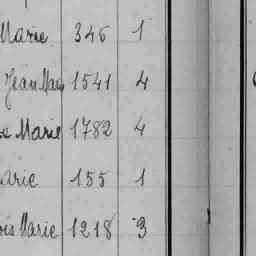 Marie 346 1
Jean Marie 1541 4
Marie 1782 4
arie 155 1
ois Marie 1218 3